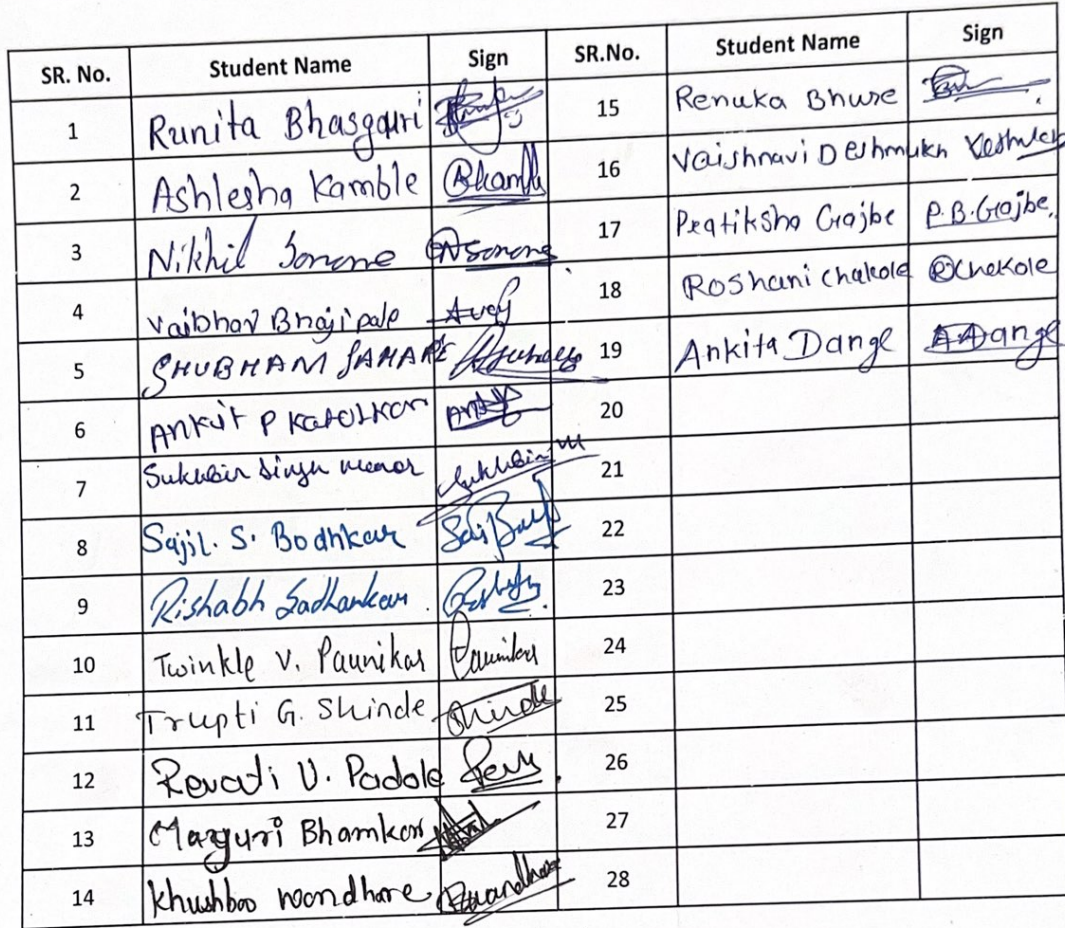 SR. No. Student Name Sign SR.No. Student Name Sign
1 Runita Bhasgauri 15 Renuka Bhure
2 Ashlesha Kamble 16 Vaishnavi Deshmukh
3 Nikhil Sonone 17 Pratiksha Gajbe P.B.Gajbe.
4 Vaibhav Bhajipale 18 Roshani Chakole RChakole
5 SHUBHAM SAHARE 19 Ankita Dange ADange
6 Ankit P Katolkar 20
7 Sukhbir Singh 21
8 Sajil. S. Bodhkar 22
9 Rishabh Sadhankar 23
10 Twinkle V. Paunikar Paunikar 24
11 Trupti G. Shinde Shinde 25
12 Revati V. Padole 26
13 Mayuri Bhamkar 27
14 Khushboo Wandhare Wandhare 28